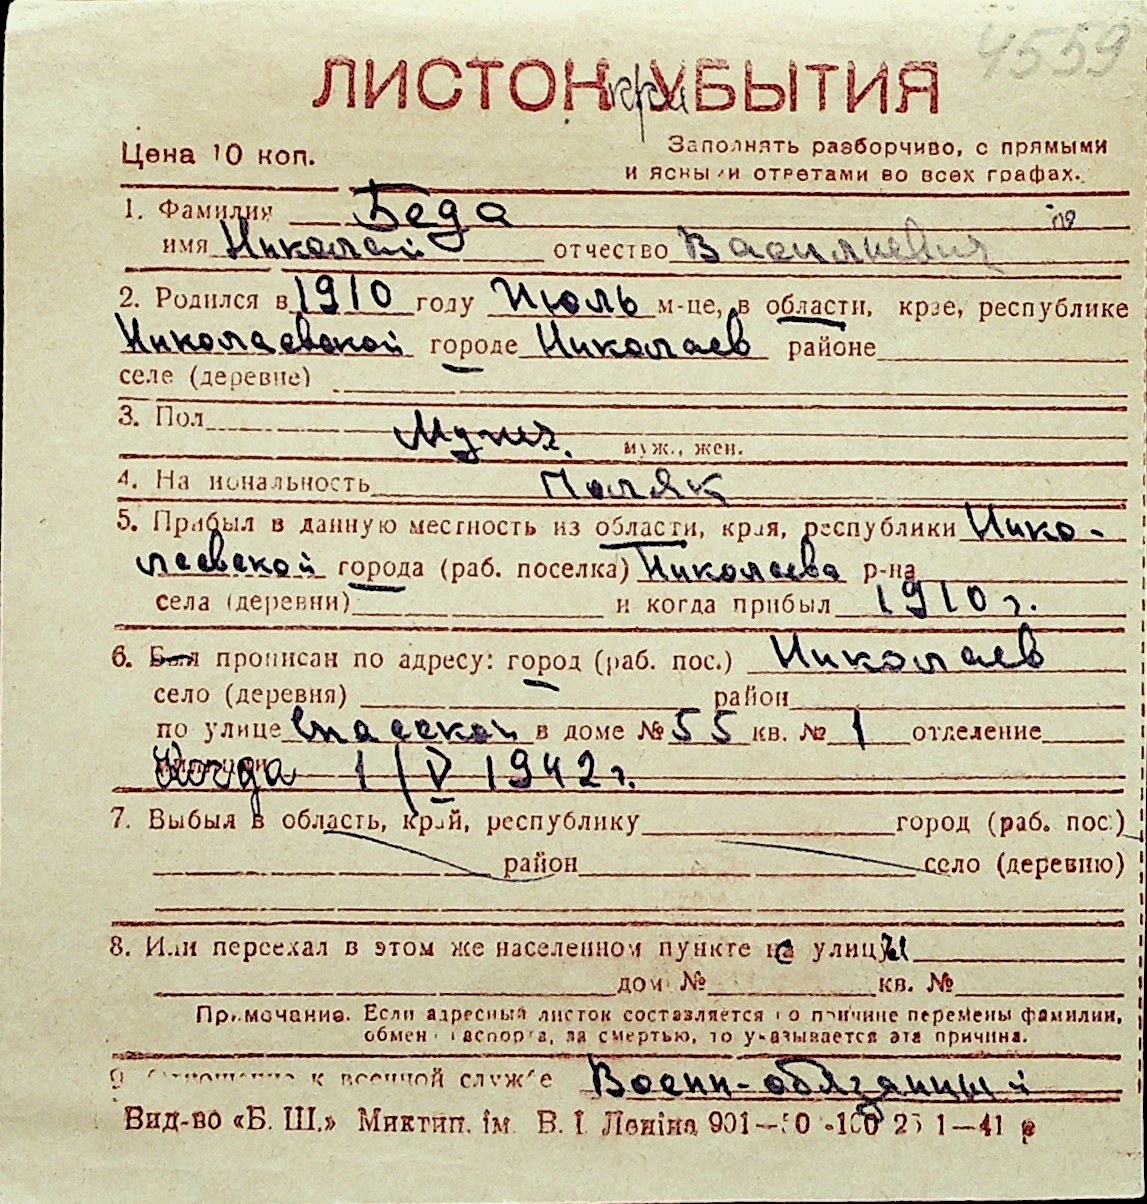 4559
ЛИСТОК УБЫТИЯ
при
Цена 10 коп.
Заполнять разборчиво, с прямыми
и ясными ответами во всех графах.
1. Фамилия Беда
имя Николай отчество Василиевич
2. Родился в 1910 году Июль м-це, в области, крае, республике
Николаевской городе Николаев районе
селе (деревне)
3. Пол Мужч. муж., жен.
4. Национальность Поляк
5. Прибыл в данную местность из области, края, республики Нико-
лаевской города (раб. поселка) Николаева р-на
села (деревни) и когда прибыл 1910 г.
6. Был прописан по адресу: город (раб. пос.) Николаев
село (деревня) район
по улице Спасской в доме № 55 кв. № 1 отделение
Когда 1/V 1942 г.
7. Выбыл в область, край, республику город (раб. пос.)
район село (деревню)
8. Или переехал в этом же населенном пункте с улицы
дом № кв. №
Примечание. Если адресный листок составляется по причине перемены фамилии,
обмен паспорта, за смертью, то указывается эта причина.
9. Отношение к военной службе Воен-обязанный
Вид-во «Б. Ш.» Миктип. ім. В. І. Леніна 901—50 -100 25 1—41 р